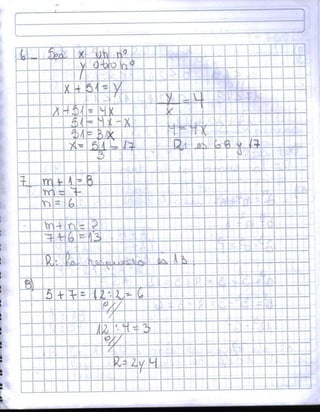 6_ Sea x un nº
y otro nº
x + 51 = y
x + 51 = 4x
51 = 4x - x
51 = 3x
x = 51/3 = 17
y/x = 4
y = 4x
R: es 68 y 17
7_ m + 1 = 8
m = 7
n = 6
m + n = ?
7 + 6 = 13
R: La respuesta es 13.
8) 5 + 7 = 12 : 2 = 6
0//
12 : 4 = 3
0//
R = 2 y 4